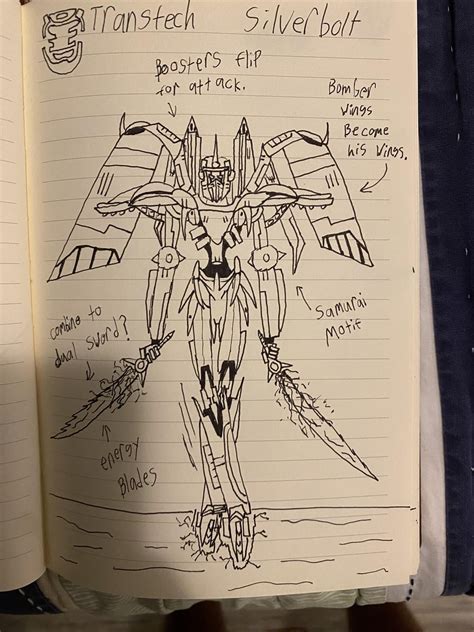 Transtech Silverbolt
Boosters flip
for attack.
Bomber
Wings
Become
his Wings.
Samurai
Motif
combine to
dual sword?
energy
Blades